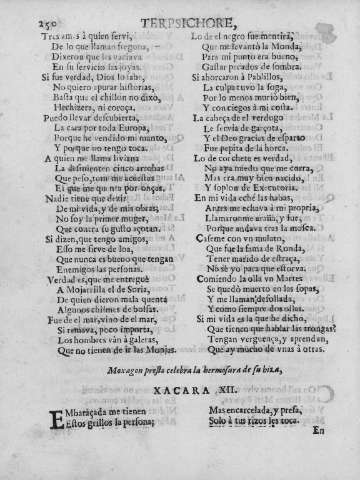 250 TERPSICHORE,
Tres amas à quien servi,
De lo que llaman fregona,
Dixeron que les vaciava
En su servicio las joyas.
Si fue verdad, Dios lo sabe,
No quiero apurar historias,
Basta que el chillon no dixo,
Hechizera, ni coroça.
Puedo llevar descubierta,
La cara por toda Europa,
Porque he vendido mi manto,
Y porque no tengo toca.
A quien me llama liviana
La desmienten cinco arrobas
Que peso, tome acuestas
El que me quiera por onças.
Nadie tiene que dezir
De mi vida, y de mis obras,
No soy la primer muger,
Que contra su gusto açotan.
Si dizen, que tengo amigos,
Esso me sirve de loa,
Que nunca es bueno que tengan
Enemigos las personas.
Verdad es, que me entreguè
A Mojarrilla el de Soria,
De quien dieron mala quenta
Algunos chismes de bolsas.
Fue de el mar, vino de el mar,
Si remava, poco importa,
Los hombres vàn à galeras,
Que no tienen de ir las Monjas.
Lo de el negro fue mentira,
Que me levantò la Monda,
Para mi punto era bueno,
Gastar pecados de sombra.
Si ahorcaron à Pablillos,
La culpa tuvo la soga,
Por lo menos muriò bien,
Y con ciegos à mi costa.
La cabeça de el verdugo
Le servia de garçota,
Y el Deo gracias de esparto
Por pepita de la horca.
Lo de corchete es verdad,
No aya miedo que me corra,
Mas era muy bien nacido,
Y soplon de Executoria.
En mi vida echè las habas,
Antes me echava à mi propria,
Llamaronme araña, y fue,
Porque andava tras la mosca.
Caseme con un mulato,
Que fue la fama de Ronda,
Tener marido de estraça,
No sè yo para que estorva.
Comiendo la olla un Martes
Se quedò muerto en las sopas,
Y me llaman desollada,
Y como siempre dos ollas.
Si mi vida es la que he dicho,
Que tienen que hablar las trongas?
Tengan verguença, y aprendan,
Que ay mucho de unas à otras.
Moxagon preso celebra la hermosura de su hiza,
XACARA XII.
EMbaraçada me tienen
Estos grillos la persona;
Mas encarcelada, y presa,
Solo à tus rizos les toca.
En